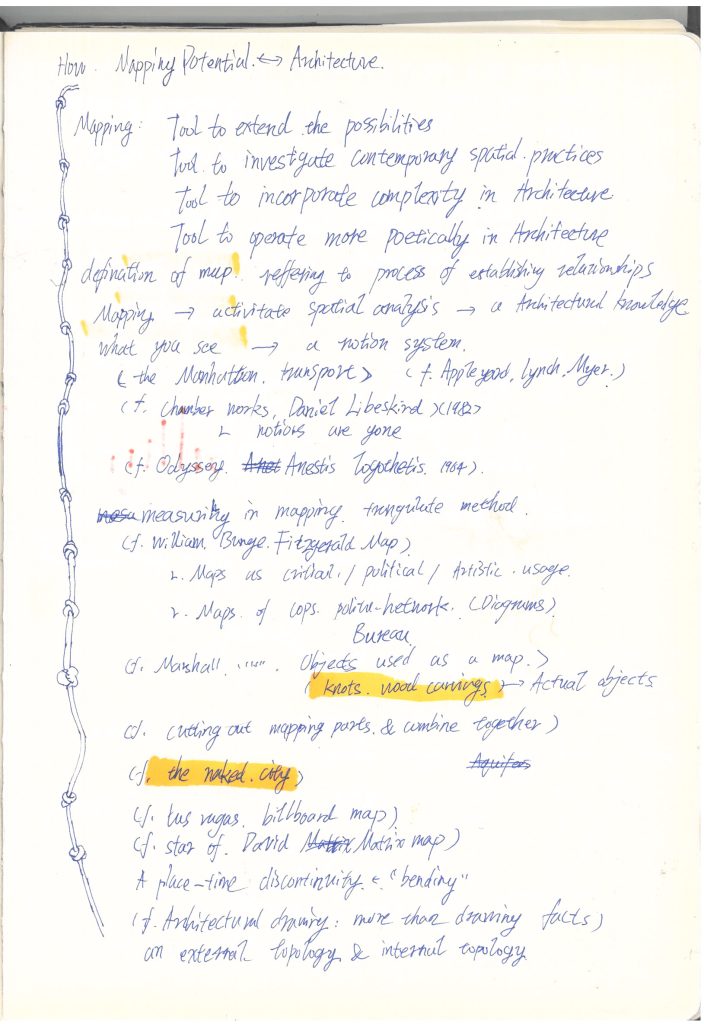 How. Mapping Potential. ↔ Architecture.
Mapping: Tool to extend the possibilities
Tool to investigate contemporary spatial practices
Tool to incorporate complexity in Architecture
Tool to operate more poetically in Architecture
defination of map: reffering to process of establishing relationships
Mapping → activitate spatial analysis → a Architectural knowledge
what you see → a notion system.
(the Manhattan. transport) (f. Appleyood, Lynch, Myer.)
(f. Chamber works, Daniel Libeskind) (1982)
notions are gone
(f. Odyssey. Anestis Logothetis. 1964).
measuring in mapping. triangulate method.
(f. William. Bunge. Fitzgerald Map)
Maps as critical / political / Artistic. usage.
Maps of cops. police-network. (Diagrams)
Bureau
cf. Marshall. Objects used as a map.)
(knots. wood carvings) → Actual objects
cutting out mapping parts. & combine together)
(f. the naked. city)
Aquifers
(f. las vagas. billboard map)
(f. star of. David Matrix Matrix map)
A place-time discontinuity. "bending"
(f. Architectural drawing: more than drawing facts)
an external topology & internal topology